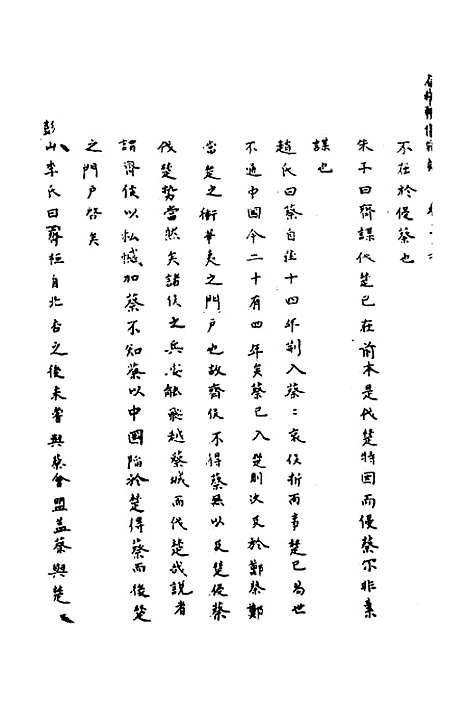 不在於侵蔡也
朱子曰齊謀伐楚已在前本是伐楚特因而侵蔡尔非素
謀也
趙氏曰蔡自莊十四年荆入蔡〻哀侯折而事楚已爲世
不通中国今二十有四年矣蔡已入楚則次及於鄭蔡鄭
當楚之衝華夷之門户也故齊侯不得蔡無以及楚侵蔡
伐楚勢當然矣諸侯之兵岂能飛越蔡城而伐楚哉説者
謂齊侯以私憾加蔡不知蔡以中国陷於楚得蔡而後楚
之門户啓矣
彭山李氏曰齊桓自北杏之後未嘗與蔡會盟盖蔡與楚